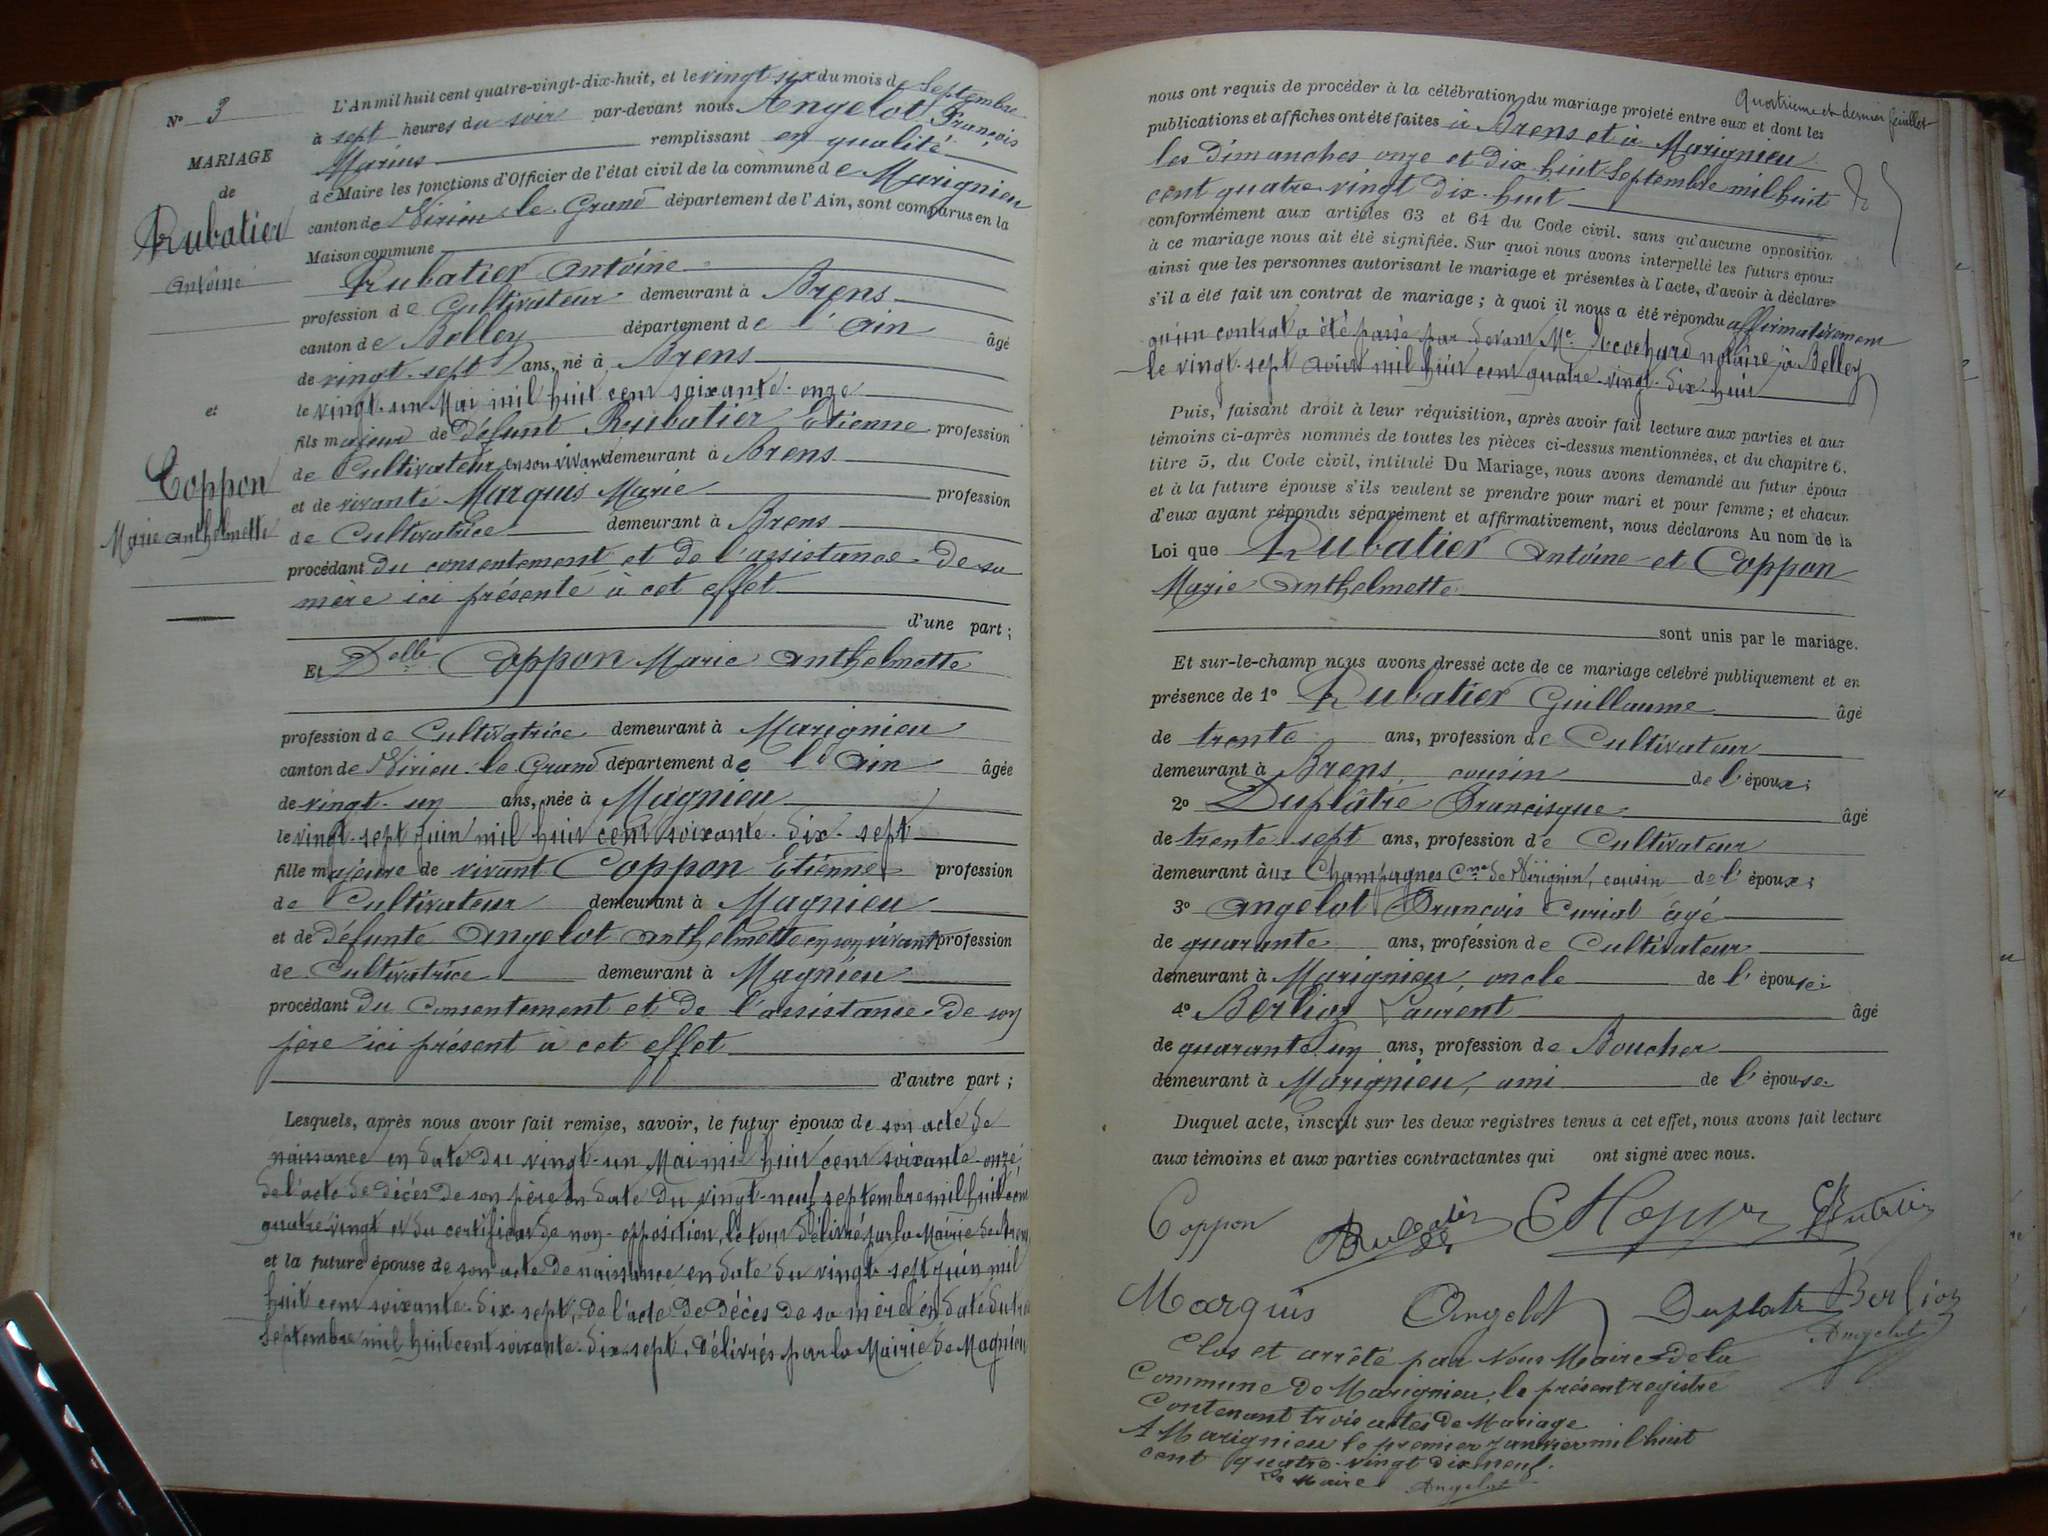 N° 3
MARIAGE
de
Rubatier
Antoine
et
Coppon
Marie Anthelmette
L'An mil huit cent quatre-vingt-dix-huit, et le vingt-six du mois de Septembre
à sept heures du soir par-devant nous Angelot François
Marius remplissant en qualité
de Maire les fonctions d'Officier de l'état civil de la commune de Marignieu
canton de Virieu-le-Grand département de l'Ain, sont comparus en la
Maison commune
Rubatier Antoine
profession de Cultivateur demeurant à Brens
canton de Belley département de l'Ain âgé
de vingt-sept ans, né à Brens
le vingt-un Mai mil huit cent soixante-onze
fils majeur de défunt Rubatier Etienne profession
de Cultivateur en son vivant demeurant à Brens
et de vivante Marquis Marie profession
de Cultivatrice demeurant à Brens
procédant du consentement et de l'assistance de sa
mère ici présente à cet effet
d'une part;
Et Delle Coppon Marie Anthelmette
profession de Cultivatrice demeurant à Marignieu
canton de Virieu-le-Grand département de l'Ain âgée
de vingt-un ans, née à Magnieu
le vingt-sept juin mil huit cent soixante-dix-sept
fille majeure de vivant Coppon Etienne profession
de Cultivateur demeurant à Magnieu
et de défunte Angelot Anthelmette en son vivant profession
de Cultivatrice demeurant à Magnieu
procédant du consentement et de l'assistance de son
père ici présent à cet effet
d'autre part;
Lesquels, après nous avoir fait remise, savoir, le futur époux de son acte de
naissance en date du vingt-un Mai mil huit cent soixante-onze,
de l'acte de décès de son père en date du vingt-neuf septembre mil huit cent
quatre-vingt et du certificat de non-opposition, le tout délivré par la Mairie de Brens
et la future épouse de son acte de naissance en date du vingt-sept juin mil
huit cent soixante-dix-sept, de l'acte de décès de sa mère en date du
Septembre mil huit cent soixante-dix-sept, délivrés par la Mairie de Magnieu
Quatrième et dernier feuillet
nous ont requis de procéder à la célébration du mariage projeté entre eux et dont les
publications et affiches ont été faites à Brens et à Marignieu
les Dimanches onze et dix-huit Septembre mil huit
cent quatre-vingt-dix-huit
conformément aux articles 63 et 64 du Code civil. sans qu'aucune opposition
à ce mariage nous ait été signifiée. Sur quoi nous avons interpellé les futurs époux
ainsi que les personnes autorisant le mariage et présentes à l'acte, d'avoir à déclarer
s'il a été fait un contrat de mariage; à quoi il nous a été répondu affirmativement
qu'un contrat a été passé par devant Me notaire à Belley
le vingt-sept août mil huit cent quatre-vingt-dix-huit
Puis, faisant droit à leur réquisition, après avoir fait lecture aux parties et aux
témoins ci-après nommés de toutes les pièces ci-dessus mentionnées, et du chapitre 6,
titre 5, du Code civil, intitulé Du Mariage, nous avons demandé au futur époux
et à la future épouse s'ils veulent se prendre pour mari et pour femme; et chacun
d'eux ayant répondu séparément et affirmativement, nous déclarons Au nom de la
Loi que Rubatier Antoine et Coppon
Marie Anthelmette
sont unis par le mariage.
Et sur-le-champ nous avons dressé acte de ce mariage célébré publiquement et en
présence de 1° Rubatier Guillaume âgé
de trente ans, profession de Cultivateur
demeurant à Brens, cousin de l'époux;
2° Duplâtre Francisque âgé
de trente-sept ans, profession de Cultivateur
demeurant aux Champagnes Cne de Virignin, cousin de l'époux;
3° Angelot François Curial âgé
de quarante ans, profession de Cultivateur
demeurant à Marignieu, oncle de l'épouse;
4° Berlioz Laurent âgé
de quarante-un ans, profession de Boucher
demeurant à Marignieu, ami de l'épouse.
Duquel acte, inscrit sur les deux registres tenus à cet effet, nous avons fait lecture
aux témoins et aux parties contractantes qui ont signé avec nous.
Coppon Rubatier Rubatier
Marquis Angelot Duplatre Berlioz
Angelot
Clos et arrêté par Nous Maire de la
Commune de Marignieu, le présent registre
Contenant trois actes de Mariage
A Marignieu le premier Janvier mil huit
cent quatre-vingt dix neuf.
Le Maire Angelot